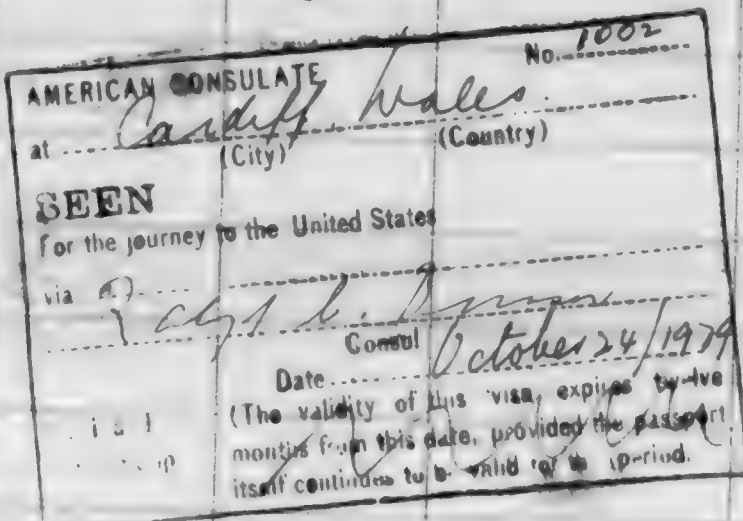 No. 1002
AMERICAN CONSULATE
at Cardiff, Wales.
(City) (Country)
SEEN
For the journey to the United States
via
Consul
Date October 24/1929
(The validity of this visa expires twelve
months from this date, provided the passport
itself continues to be valid for period.